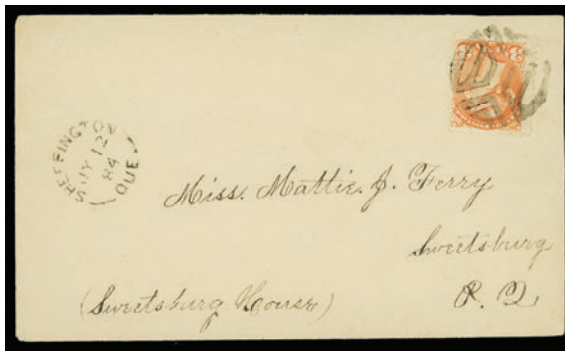 SHEFFINGTON QUE.
JY 12
84
Miss. Mattie. J. Ferry
Sweetsburg
P. Q.
(Sweetsburg House)